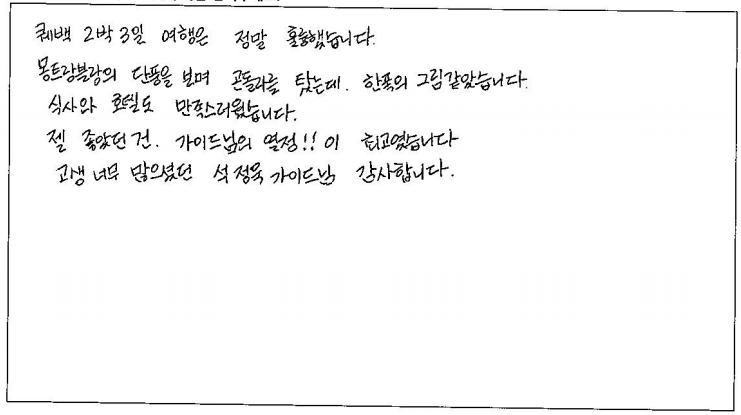 퀘백 2박 3일 여행은 정말 훌륭했습니다.
몽트랑블랑의 단풍을 보며 곤돌라를 탓는데. 한폭의 그림같았습니다.
식사와 호텔도 만족스러웠습니다.
젤 좋았던 건. 가이드님의 열정!! 이 최고였습니다
고생 너무 많으셨던 석정욱 가이드님 감사합니다.